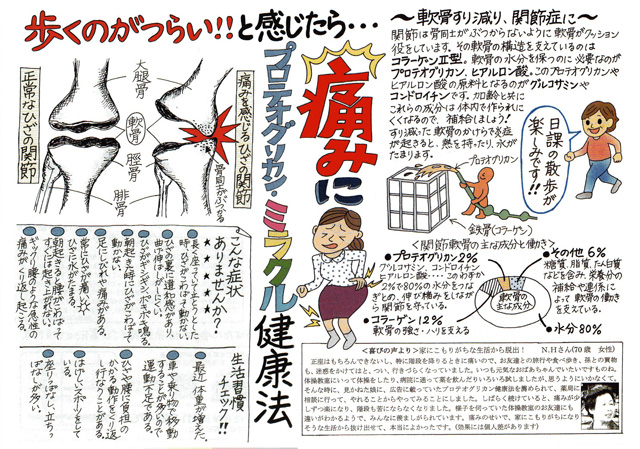 歩くのがつらい!!と感じたら…
痛みに
プロテオグリカン・ミラクル健康法
正常なひざの関節
大腿骨
軟骨
脛骨
腓骨
痛みを感じるひざの関節
骨同士がぶつかる
～軟骨すり減り、関節症に～
関節は骨同士がぶつからないように軟骨がクッション
役をしています。その軟骨の構造を支えているのは
コラーゲンⅡ型。軟骨の水分を保つのに必要なのが
プロテオグリカン、ヒアルロン酸。このプロテオグリカンや
ヒアルロン酸の原料となるのがグルコサミンや
コンドロイチンです。加齢と共に
これらの成分は体内で作られに
くくなるので、補給しましょう!
すり減った軟骨のかけらで炎症
が起きると、熱を持ったり、水が
たまります。
日課の散歩が
楽しみです!!
プロテオグリカン
鉄骨(コラーゲン)
<関節軟骨の主な成分と働き>
●プロテオグリカン2%
グリコサミン、コンドロイチン
ヒアルロン酸・・・このわずか
2%で80%の水分をつな
ぎとめ、伸び縮みをしながら
関節を守っている。
●コラーゲン12%
軟骨の強さ・ハリを支える
●その他6%
糖質、脂質、たん白質
などを含み、栄養分の
補給や連係に
よって軟骨の働き
を支えている。
軟骨の
主な成分
●水分80%
こんな症状
ありませんか?
★★★★★
長く座っていて立つ
時、ひざがこわばって
ひざの裏に違和感があり、
曲げ伸ばしがしにくい。
ひざがギシギシ、ポキポキ鳴る。
朝起きた時にひざがこわばって
動かない。
足にしびれや痛みがある。
常にひざが痛い
ひざに水がたまる。
朝起きると腰がこわばって
すぐには起き上がれない。
ギックリ腰のような急性の
痛みがくり返し起こる。
生活習慣
チェック!!
最近、体重が増えた。
車や乗り物で移動
することが多いので
運動不足である。
ひざや腰に負担の
かかる動作をくり返
し行なうことがある。
はげしいスポーツをして
いる。
座りっぱなし、立ちっ
ぱなしが多い。
<喜びの声より>家にこもりがちな生活から脱出! N.Hさん(70歳 女性)
正座はもちろんできないし、特に階段を降りるときに痛いので、お友達との旅行や食べ歩き、孫との買物
も、迷惑をかけてはと、つい、行きづらくなっていました。いつも元気なおばあちゃんでいたいですものね。
体操教室にいって体操をしたり、病院に通って薬を飲んだりいろいろ試しましたが、思うようにいかなくて。
そんな時に、見かねた娘に、広告に載っていたプロテオグリカン健康法を薦められて、薬局に
相談に行って、やれることからやってみることにしました。しばらく続けていると、痛みが少
しずつ楽になり、階段も苦にならなくなりました。様子を伺っていた体操教室のお友達にも
違いがわかるようで、みんなに羨ましがられています。痛みのせいで、家にこもりがちになり
そうな生活から抜け出せて、本当によかったです。(効果には個人差があります)